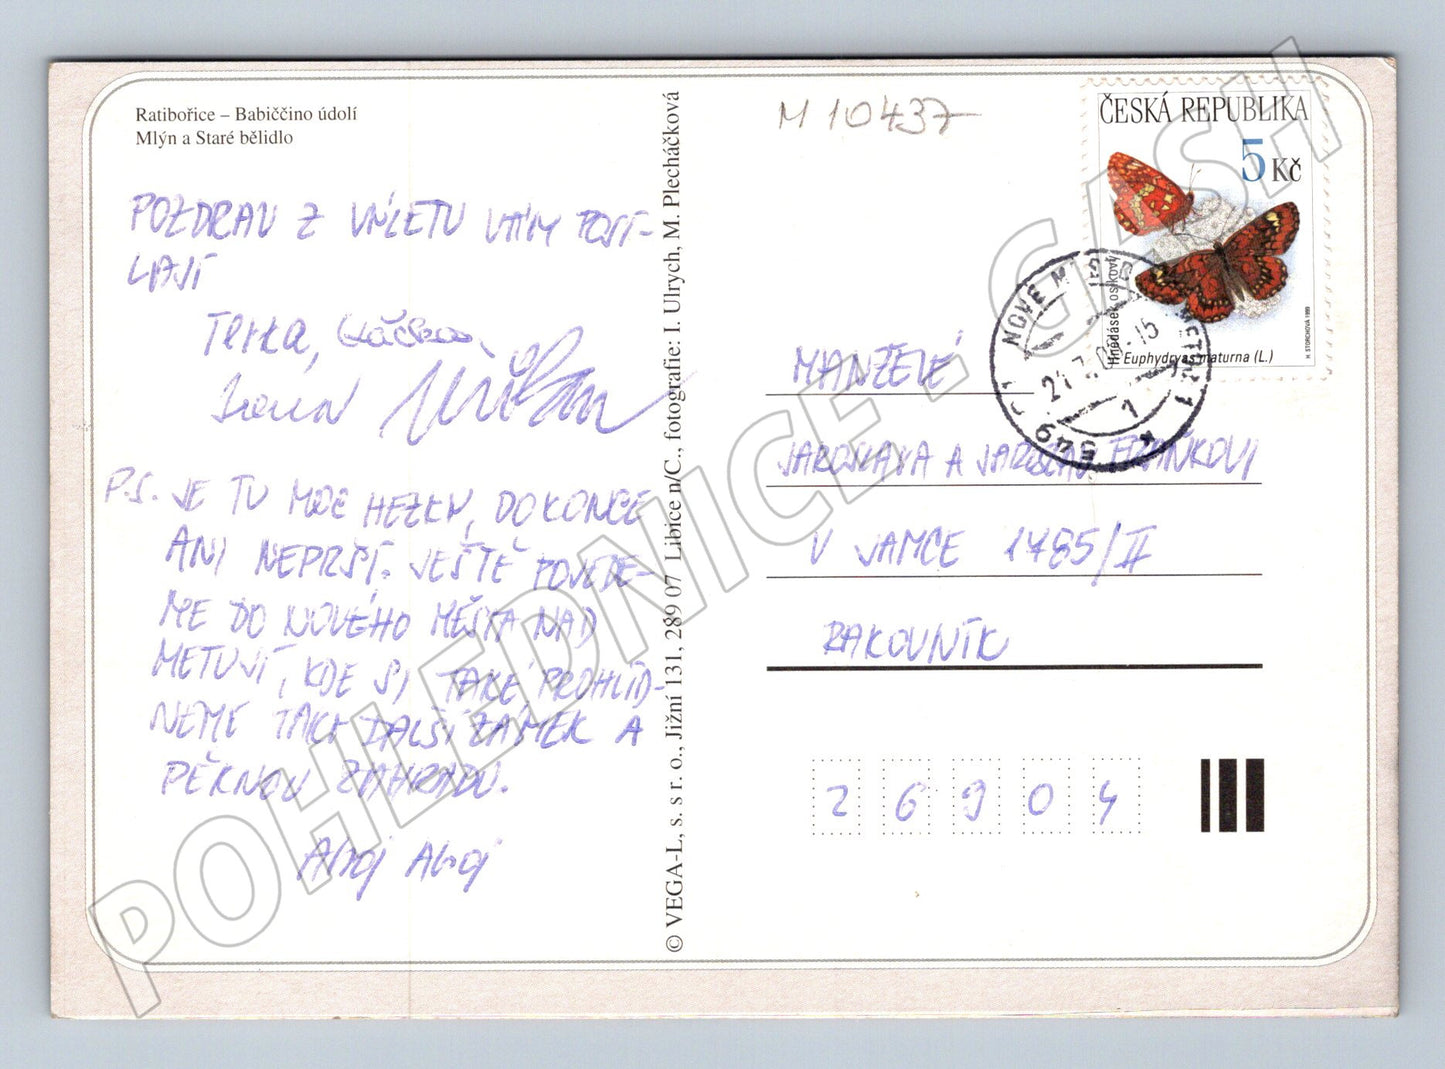 Ratibořice – Babiččino údolí
Mlýn a Staré bělidlo
POZDRAV Z VÝLETU VÁM POSÍ-
LAJÍ
Terka,
P.S. JE TU MOC HEZKY, DOKONCE
ANI NEPRŠÍ. JEŠTĚ POJEDE-
ME DO NOVÉHO MĚSTA NAD
METUJÍ, KDE SI TAKÉ PROHLÍD-
NEME TAKÉ DALŠÍ ZÁMEK A
PĚKNOU ZAHRADU.
Ahoj Ahoj
© VEGA-L, s. s r. o., Jižní 131, 289 07 Libice n/C., fotografie: I. Ulrych, M. Plecháčková
M 10437
ČESKÁ REPUBLIKA
5 Kč
Hnědásek osikový
Euphydryas maturna (L.)
H. STORCHOVÁ 1999
NOVÉ MĚSTO N. METUJÍ 1
549 01
MANŽELÉ
JAROSLAVA A JAROSLAV FRAŇKOVI
V JAMCE 1785/II
RAKOVNÍK
26904
POHLEDNICE - GASH